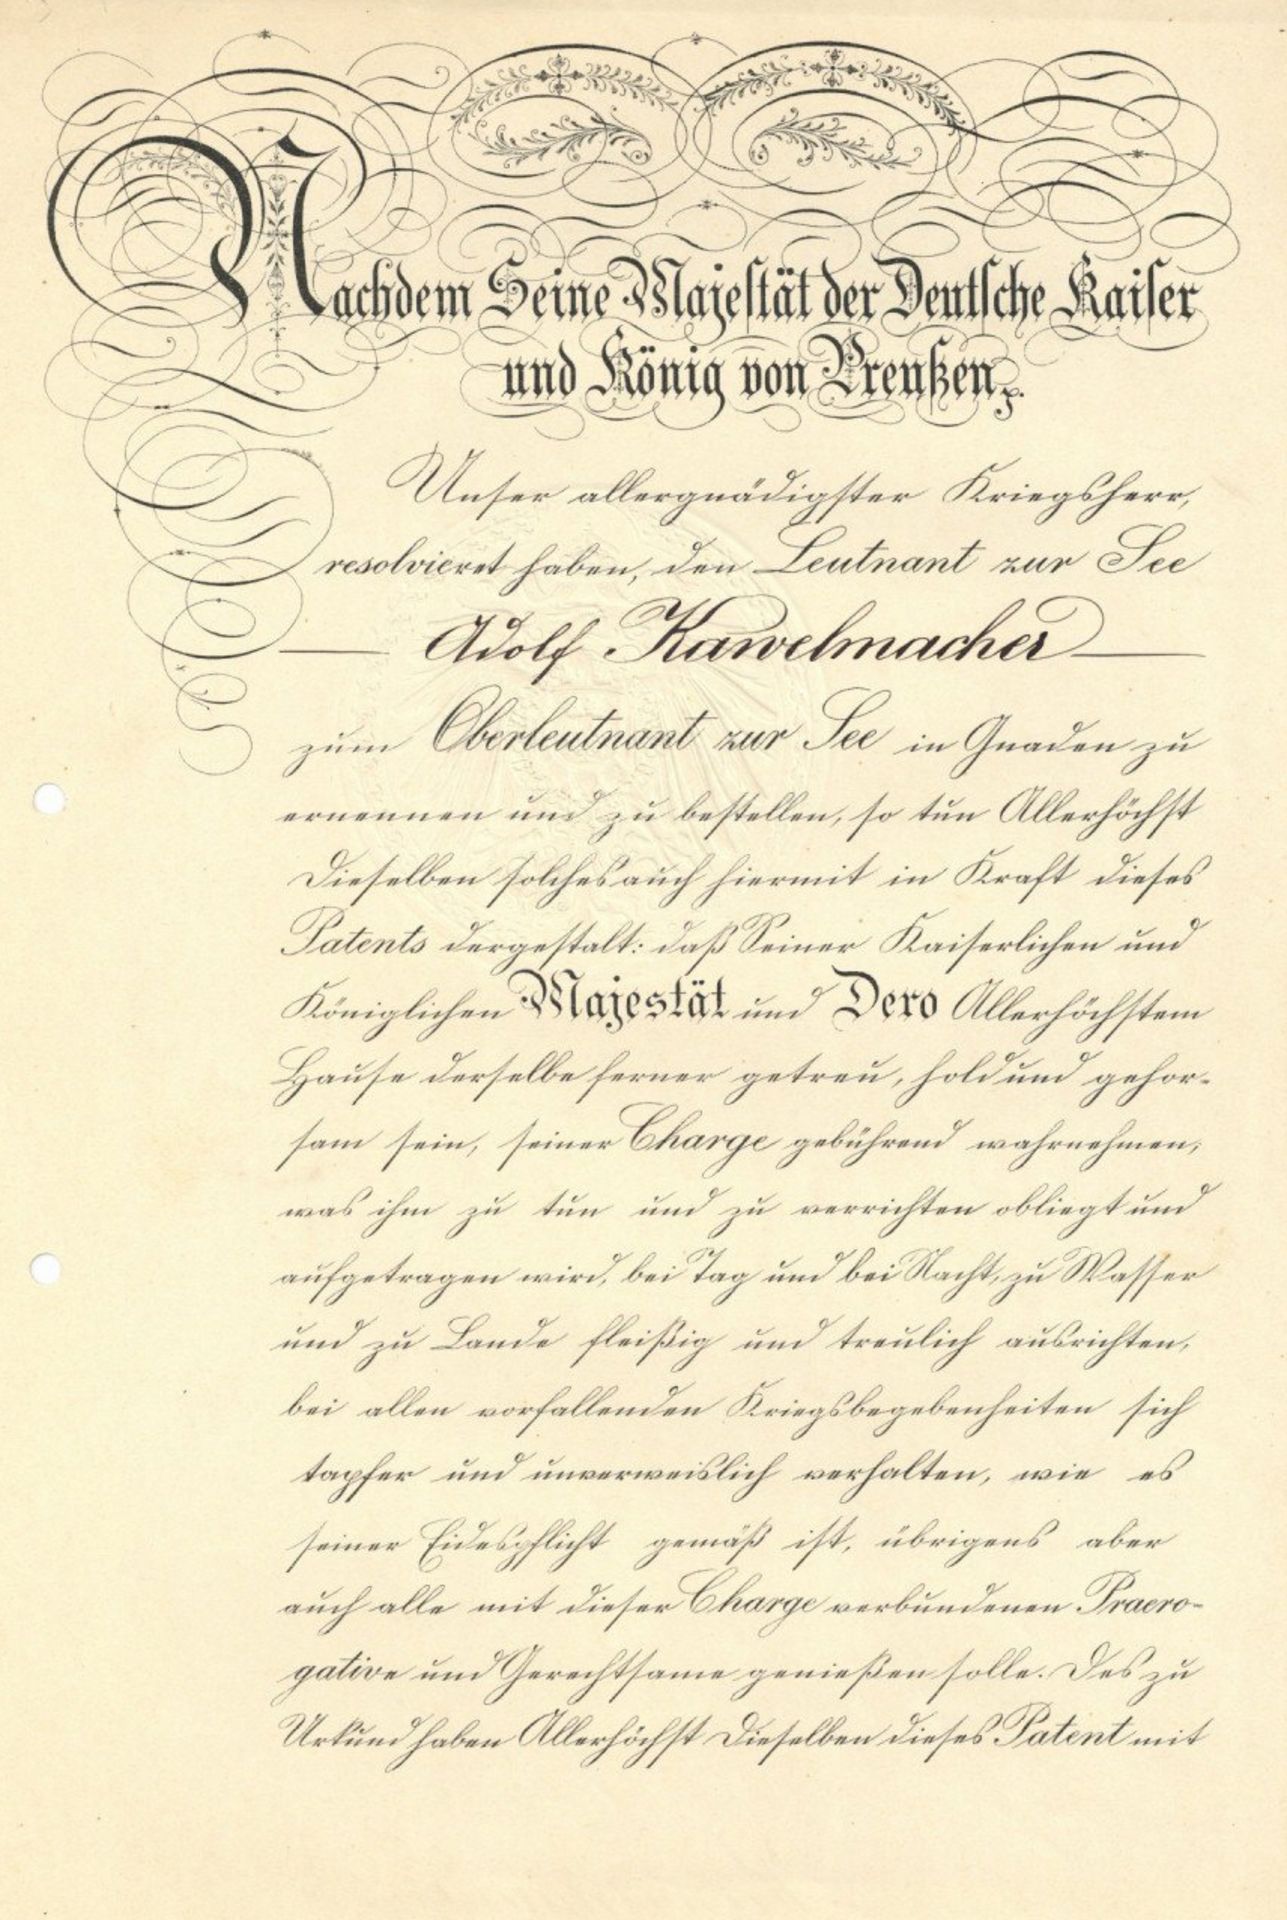 Nachdem Seine Majestät der Deutsche Kaiser
und König von Preußen p.
Unser allergnädigster Kriegsherr,
resolvieret haben, den Leutnant zur See
Adolf Kawelmacher
zum Oberleutnant zur See in Gnaden zu
ernennen und zu bestellen, so tun Allerhöchst
Dieselben solches auch hiermit in Kraft dieses
Patents dergestalt: daß Seiner Kaiserlichen und
Königlichen Majestät und Dero Allerhöchstem
Hause derselbe ferner getreu, hold und gehor-
sam sein, seiner Charge gebührend wahrnehmen,
was ihm zu tun und zu verrichten obliegt und
aufgetragen wird, bei Tag und bei Nacht, zu Wasser
und zu Lande fleißig und treulich ausrichten,
bei allen vorfallenden Kriegsbegebenheiten sich
tapfer und unverweislich verhalten, wie es
seiner Eidespflicht gemäß ist, übrigens aber
auch alle mit dieser Charge verbundenen Praero-
gative und Gerechtsame genießen solle. Des zu
Urkund haben Allerhöchst Dieselben dieses Patent mit